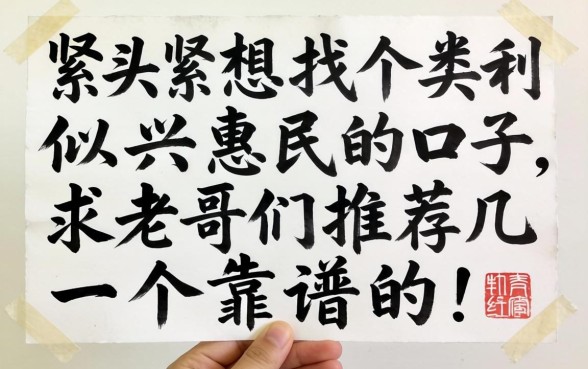 紧头紧想找个类利
似兴惠民的口子,
求老哥们推荐几
一个靠谱的!